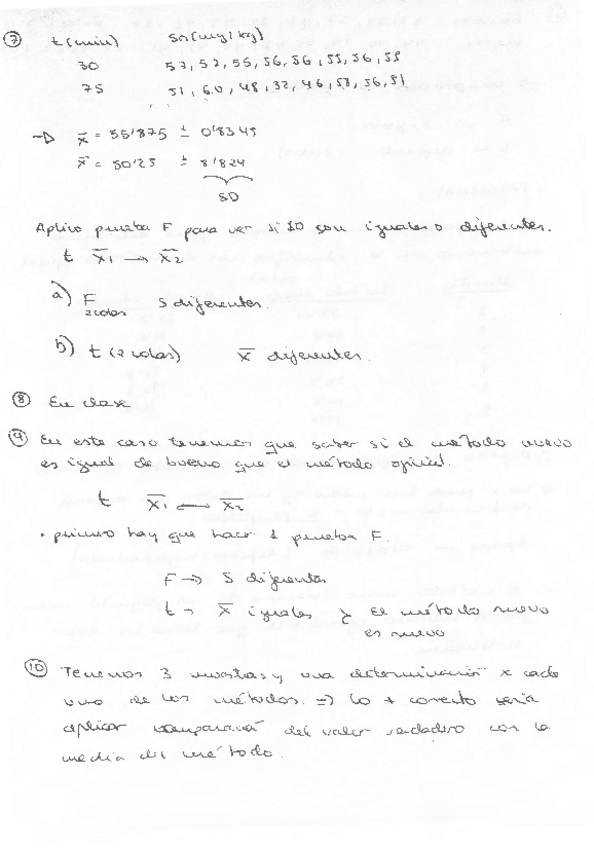 ⑦ t (min) Sn (mg/kg)
30 57, 57, 55, 56, 56, 55, 56, 55
75 51, 60, 48, 32, 46, 58, 56, 51
→ x̄ = 55'875 ± 0'8345
x̄ = 50'25 ± 8'824
SD
Aplico prueba F para ver si SD son iguales o diferentes.
t x̄1 → x̄2
a) F S diferentes.
2 colas
b) t (2 colas) x̄ diferentes.
⑧ En clase
⑨ En este caso tenemos que saber si el método nuevo
es igual de bueno que el método oficial.
t x̄1 ⟷ x̄2
• primero hay que hacer 1 prueba F.
F → S diferentes
t → x̄ iguales } El método nuevo
es nuevo
⑩ Tenemos 3 muestas y una determinación x cada
uno de los métodos. ⇒ Lo + correcto sería
aplicar comparación del valor verdadero con la
media del método.